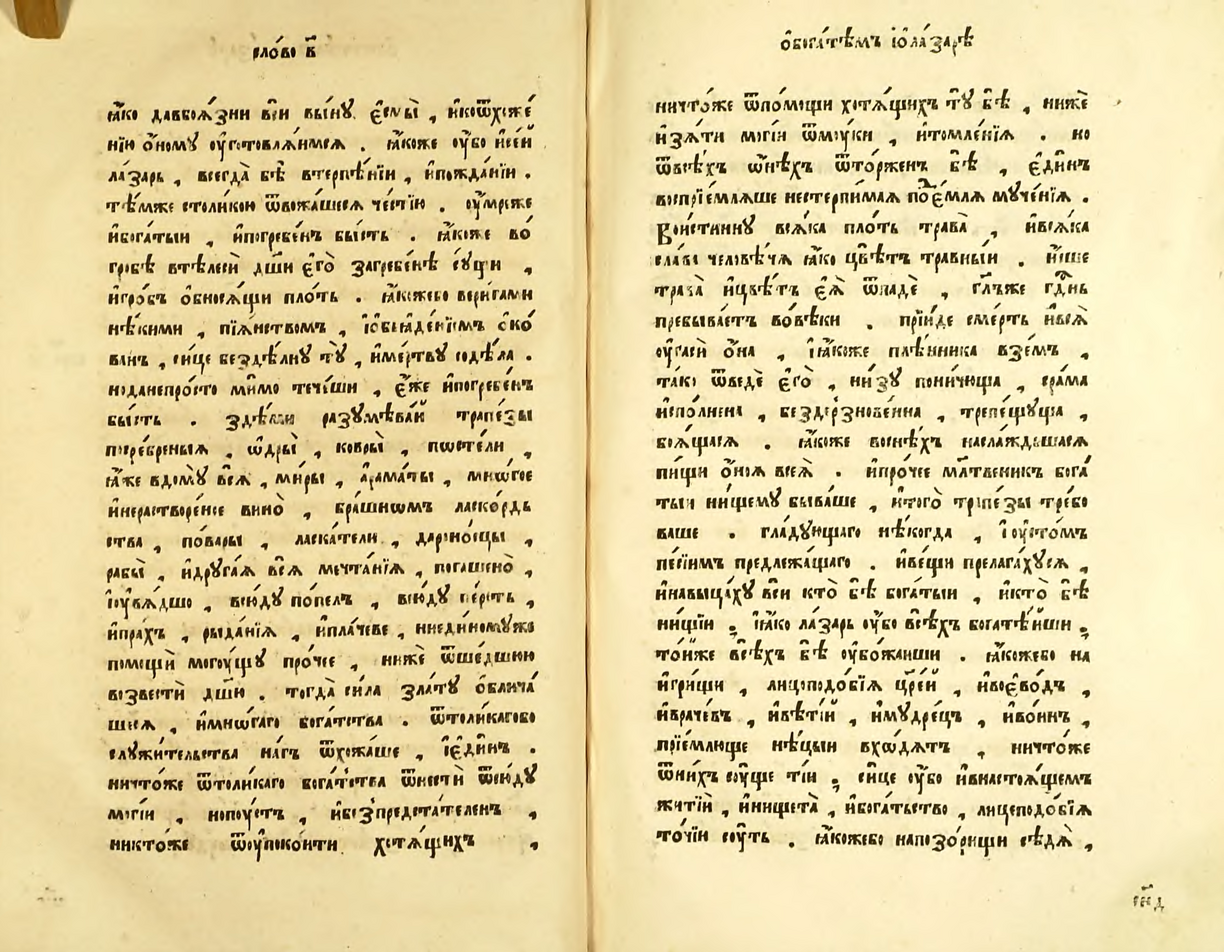 сло́во в҃
ꙗ҆́ко давбоѧ́зни вси вы́нꙋ є҆смы̀ , и҆коѿхожє́
нїю о҆́номꙋ оу҆готовлѧ́имсѧ . ꙗ҆́коже оу҆́бо и҆се́и
ла́зарь , всегда̀ бѣ̀ втерпѣ́нїи , и҆пожда́нїи .
тѣ́мже столи́кою ѿвожа́шесѧ че́стїю . оу҆́мреже
и҆бога́тыи , и҆погребе́нъ бы́сть . ꙗ҆́коже во
гро́бѣ втѣ́лесѝ дш҃и є҆го̀ загребе́нѣ сꙋ́щи ,
и҆гро́бъ о҆бносѧ́щи пло́ть . ꙗ҆́кожебо вери́гами
нѣ́кими , пїѧ́нствомъ , їо҆бьꙗде́нїемъ ѻ҆ко́
ва́нъ , си́це безⸯдѣ́лнꙋ тꙋ̀ , и҆ме́ртвꙋ содѣ́ла .
ноданепро́сто ми́мо тече́ши , є҆́же и҆погребе́нъ
бы́сть . здѣ́ми разꙋмѣва́и трапе́зы
посре́бреныѧ , ѡ҆дры̀ , ковры̀ , пѡсте́ли ,
ꙗ҆́же вдомꙋ̀ всѧ̀ , ми́ры , а҆рама́ты , мнѡ́гое
и҆нерастворе́ное вино̀ , бра́шнѡмъ ласко́рдь
ства , по́вары , ласка́тели , дароно́сцы ,
рабы̀ , и҆дрꙋга́ѧ всѧ̀ мечта́нїѧ , погашено̀ ,
їоу҆вѧ́дшо , всю́дꙋ по́пелъ , всю́дꙋ пе́рсть ,
и҆пра́хъ , рыда́нїѧ , и҆пла́чеве , ниеди́номꙋже
помощѝ могоу́щꙋ про́чее , нижѐ ѿше́дшюю
возвестѝ дш҃и . тогда̀ си́ла зла́тꙋ о҆блича́
шесѧ , и҆мнѡ́гаго бога́тства . ѿтоли́кагобо
слꙋжи́тельства на́гъ ѿхожа́ше , їє҆ди́нъ .
ничто́же ѿтоли́каго бога́тства ѿнестѝ ѿсю́дꙋ
мо́гїи , нопоу́стъ , и҆безⸯпредста́теленъ ,
никто́же ѿоу҆поко́ити хотѧ́щихъ ,
ѻ҆бога́тѣмъ їѻ҆ла́зарѣ
ничто́же ѿпомощи хотѧ́щихъ тꙋ̀ бѣ̀ , нижѐ
и҆зѧ́ти мо́гїи ѿмꙋ́ки , и҆томле́нїѧ . но
ѿвсѣ́хъ ѡ҆нѣ́хъ ѿто́рженъ бѣ̀ , є҆ди́нъ
воспрїе́млѧше нестерпи́маѧ пое́млѧ мꙋче́нїѧ .
вои́стиннꙋ всѧ́ка пло́ть трава̀ , и҆всѧ́ка
сла́ва человѣ́чѧ ꙗ҆́ко цвѣ́тъ травны́и . и҆́сше
трава̀ и҆цвѣ́тъ є҆ѧ̀ ѿпадѐ , гл҃ъже гдⷭ҇нь
пребыва́етъ во́вѣки . прїи́де сме́рть и҆всѧ̀
оу҆гасѝ о҆́на , їꙗ҆́коже плѣ́нника взе́мъ ,
та́ко ѿведѐ є҆го̀ , ни́зꙋ пони́чюща , сра́ма
и҆спо́лнена , бездерзнове́нна , трепе́щꙋща ,
боѧ́щасѧ . ꙗ҆́коже воснѣ́хъ наслажда́шасѧ
пи́щи о҆́ноѧ всеѧ̀ . и҆про́чее мл҃твеникъ бога́
тыи ни́щемꙋ быва́ше , и҆того̀ трапе́зы тре́бо
ваше . гла́дꙋющаго нѣ́когда , їоу҆сто́мъ
пе́сїимъ предлежа́щаго . и҆ве́щи прелага́хꙋсѧ ,
и҆навыца́хꙋ всѝ кто̀ бѣ̀ бога́тыи , и҆кто̀ бѣ̀
ни́щїи ; їꙗ҆́ко ла́зарь оу҆́бо всѣ́хъ богатѣ́иши ;
то́иже всѣ́хъ бѣ̀ оу҆бо́жаиши . ꙗ҆́кожебо на
и҆гри́щи , лицеподо́бїѧ цр҃е́и , и҆вое҆во́дъ ,
и҆враче́въ , и҆вѣ́тїи , и҆мꙋдре́цъ , и҆во́инъ ,
прїе́млюще нѣ́цыи вхѡ́дѧтъ , ничто́же
ѿни́хъ соу́ще ті́и ; си́це оу҆́бо и҆внастоѧ́щемъ
житїѝ , и҆нищета̀ , и҆бога́тьство , лицеподо́бїѧ
то́чїи соу́ть . ꙗ҆́кожебо напозо́рищи сѣдѧ̀ ,